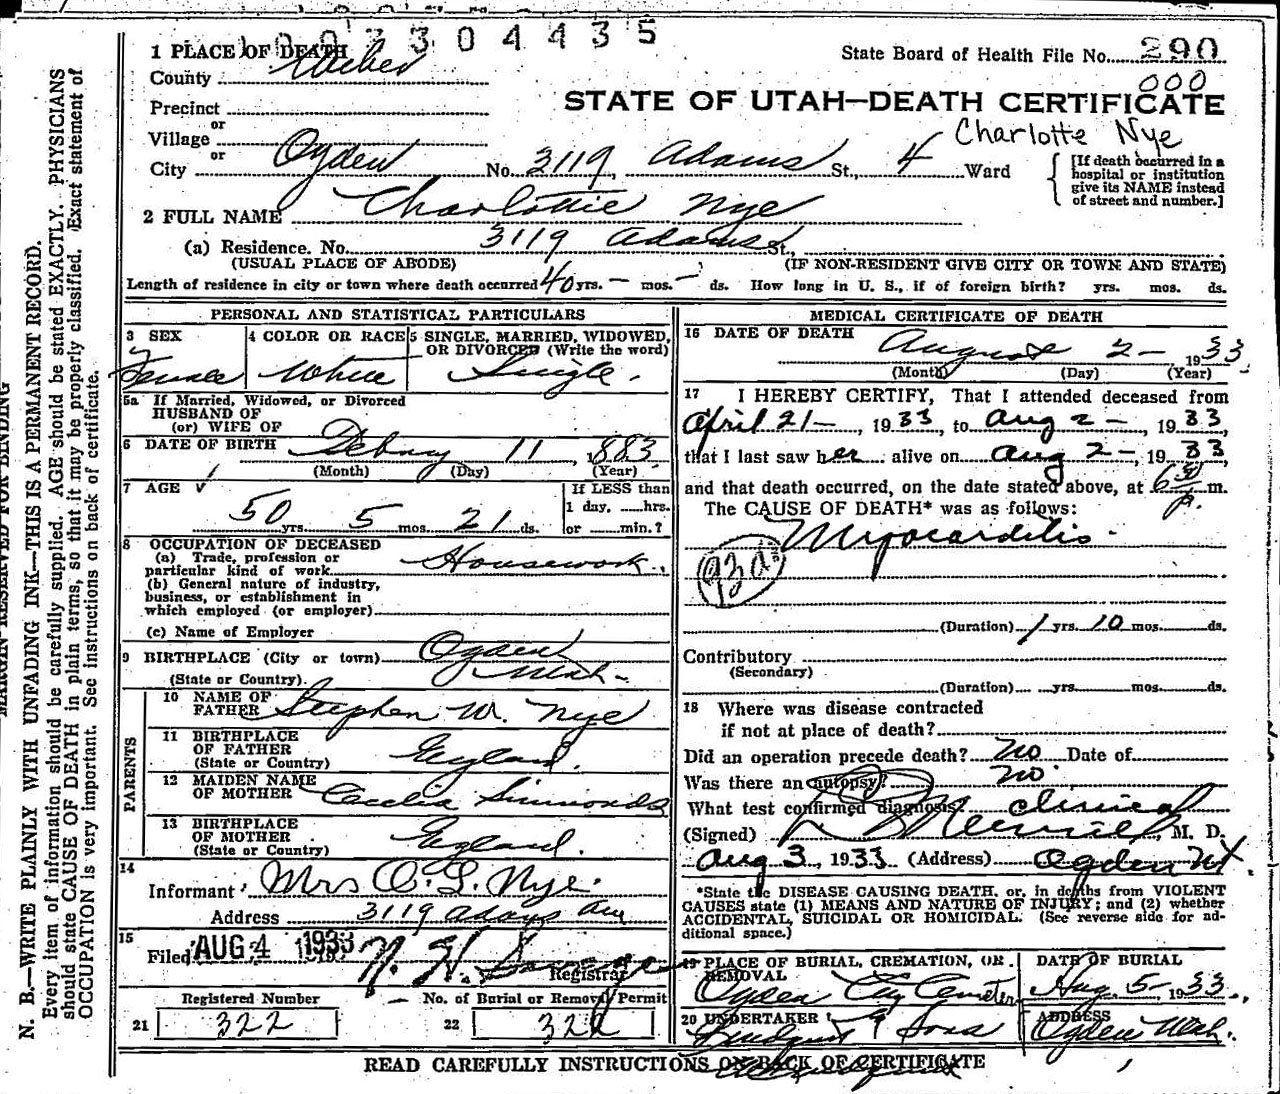 3 0 4 4 3 5
1 PLACE OF DEATH
State Board of Health File No. 290
000
County Weber
STATE OF UTAH—DEATH CERTIFICATE
Precinct
or
Charlotte Nye
Village
or
City Ogden No. 3119, Adams St., 4 Ward
[If death occurred in a hospital or institution give its NAME instead of street and number.]
2 FULL NAME Charlottie Nye
(a) Residence. No. 3119 Adams St.,
(USUAL PLACE OF ABODE) (IF NON-RESIDENT GIVE CITY OR TOWN AND STATE)
Length of residence in city or town where death occurred 40 yrs. – mos. – ds. How long in U. S., if of foreign birth? yrs. mos. ds.
PERSONAL AND STATISTICAL PARTICULARS
3 SEX Female
4 COLOR OR RACE White
5 SINGLE, MARRIED, WIDOWED, OR DIVORCED (Write the word) Single.
5a If Married, Widowed, or Divorced
HUSBAND OF
(or) WIFE OF
6 DATE OF BIRTH 11 1883
(Month) (Day) (Year)
7 AGE 50 yrs. 5 mos. 21 ds.
If LESS than
1 day, ....hrs.
or ....min.?
8 OCCUPATION OF DECEASED
(a) Trade, profession or
particular kind of work Housework.
(b) General nature of industry,
business, or establishment in
which employed (or employer)
(c) Name of Employer
9 BIRTHPLACE (City or town) Ogden
(State or Country). Utah-
PARENTS
10 NAME OF FATHER Stephen W. Nye
11 BIRTHPLACE OF FATHER England.
(State or Country)
12 MAIDEN NAME OF MOTHER Cecelia Simmonds
13 BIRTHPLACE OF MOTHER England.
(State or Country)
14
Informant Mrs O. L. Nye.
Address 3119 Adams Ave
15
Filed AUG 4 1933 Registrar
Registered Number No. of Burial or Removal Permit
21 322 22 322
MEDICAL CERTIFICATE OF DEATH
16 DATE OF DEATH August 2 – 1933
(Month) (Day) (Year)
17 I HEREBY CERTIFY, That I attended deceased from
April 21 –, 1933, to Aug 2 –, 1933,
that I last saw her alive on Aug 2 –, 1933,
and that death occurred, on the date stated above, at 6 30 p. m.
The CAUSE OF DEATH* was as follows:
Myocarditis.
93a
(Duration) 1 yrs. 10 mos. ds.
Contributory
(Secondary)
(Duration) yrs. mos. ds.
18 Where was disease contracted
if not at place of death?
Did an operation precede death? No Date of
Was there an autopsy? No.
What test confirmed diagnosis? Clinical
(Signed) Merrill, M. D.
Aug 3, 1933 (Address) Ogden Ut.
*State the DISEASE CAUSING DEATH, or, in deaths from VIOLENT
CAUSES state (1) MEANS AND NATURE OF INJURY; and (2) whether
ACCIDENTAL, SUICIDAL OR HOMICIDAL. (See reverse side for ad-
ditional space.)
19 PLACE OF BURIAL, CREMATION, OR REMOVAL Ogden City Cemetery
DATE OF BURIAL Aug. 5 – 1933.
20 UNDERTAKER Lindquist & Sons
ADDRESS Ogden Utah.
READ CAREFULLY INSTRUCTIONS ON BACK OF CERTIFICATE
MARGIN RESERVED FOR BINDING
N. B.—WRITE PLAINLY WITH UNFADING INK—THIS IS A PERMANENT RECORD.
Every item of information should be carefully supplied. AGE should be stated EXACTLY. PHYSICIANS
should state CAUSE OF DEATH in plain terms, so that it may be properly classified. Exact statement of
OCCUPATION is very important. See instructions on back of certificate.